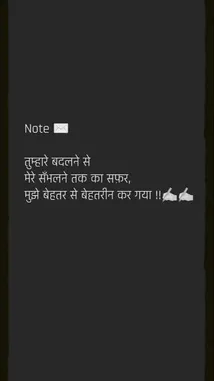 Note ✉️
तुम्हारे बदलने से
मेरे सँभलने तक का सफ़र,
मुझे बेहतर से बेहतरीन कर गया !!✍️✍️